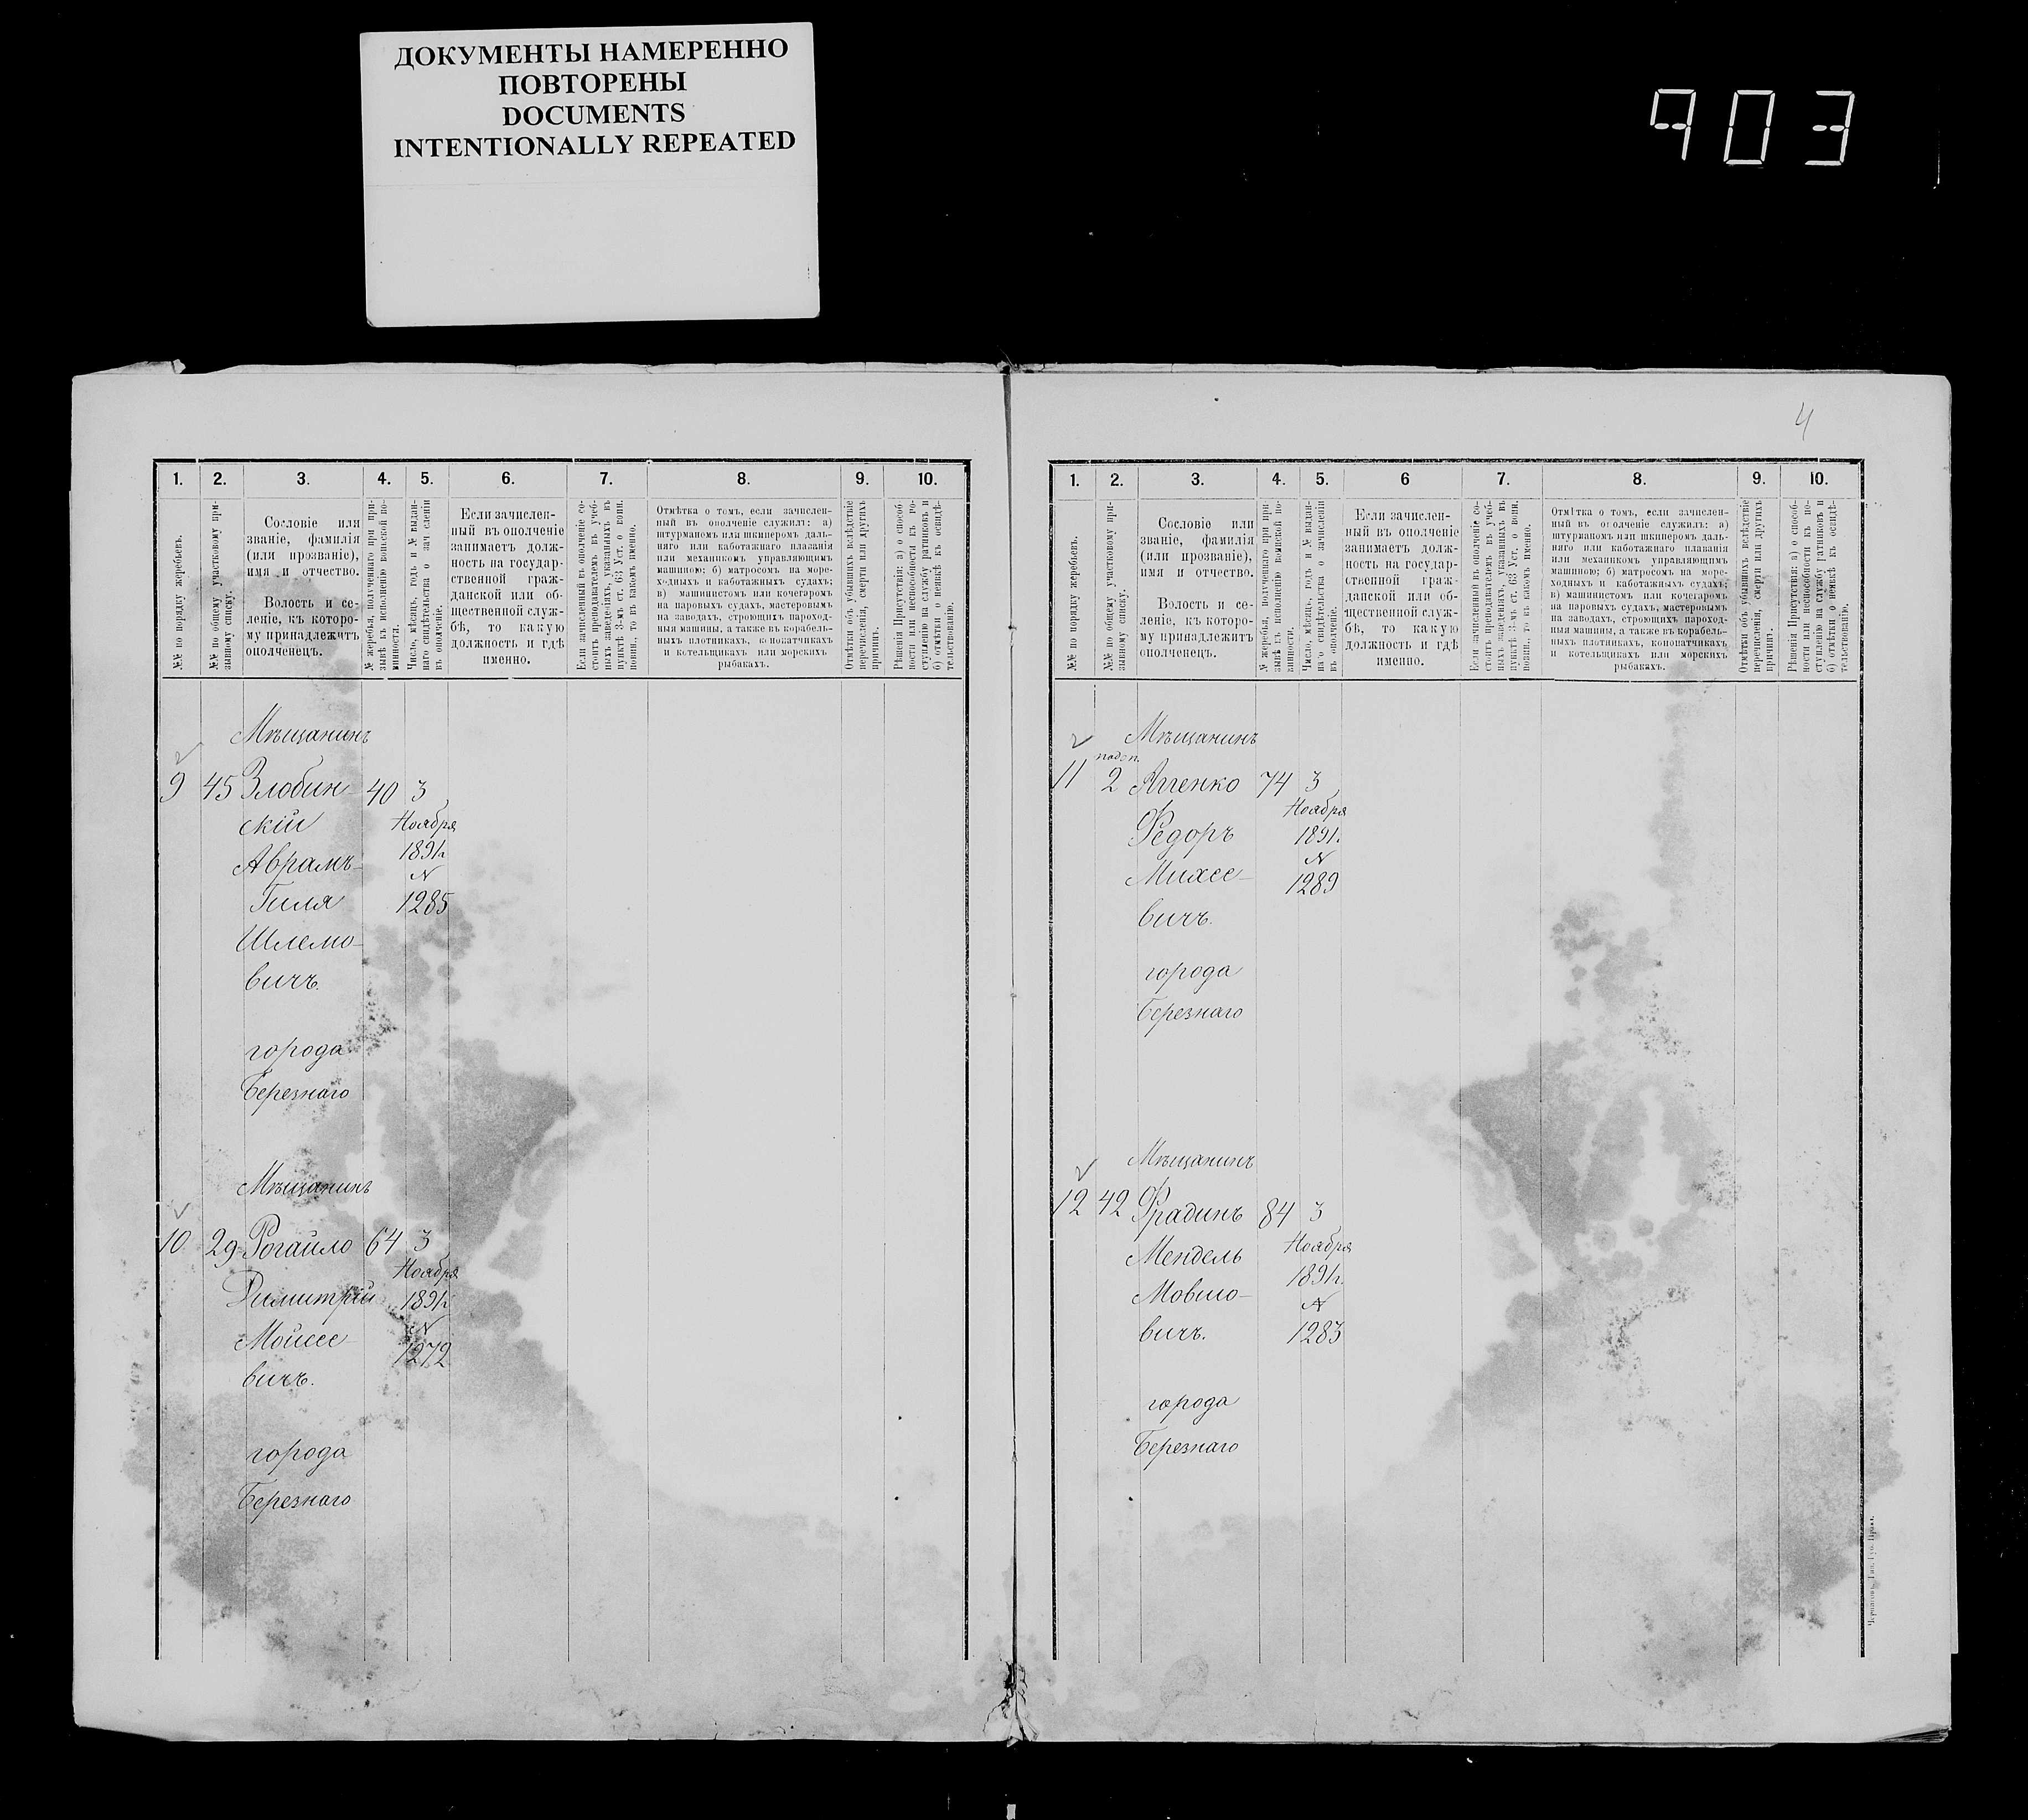 ДОКУМЕНТЫ НАМЕРЕННО
ПОВТОРЕНЫ
DOCUMENTS
INTENTIONALLY REPEATED
903
1.
2.
3.
4.
5.
6.
7.
8.
9.
10.
№№ по порядку жеребьевъ.
№№ по общему участковому при-
зывному списку.
Сословіе или
званіе, фамилія
(или прозваніе),
имя и отчество.
Волость и се-
леніе, къ которо-
му принадлежитъ
ополченецъ.
№ жеребья, полученнаго при при-
зывѣ къ исполненію воинской по-
винности.
Число, мѣсяцъ, годъ и № выдан-
наго свидѣтельства о зачисленіи
въ ополченіе.
Если зачислен-
ный въ ополченіе
занимаетъ долж-
ность на государ-
ственной граж-
данской или об-
щественной служ-
бѣ, то какую
должность и гдѣ
именно.
Если зачисленный въ ополченіе со-
стоитъ преподавателемъ въ учеб-
ныхъ заведеніяхъ, указанныхъ въ
пунктѣ 3-мъ ст. 63 Уст. о воин.
повин., то въ какомъ именно.
Отмѣтка о томъ, если зачислен-
ный въ ополченіе служилъ: а)
штурманомъ или шкиперомъ даль-
няго или каботажнаго плаванія
или механикомъ управляющимъ
машиною; б) матросомъ на море-
ходныхъ и каботажныхъ судахъ;
в) машинистомъ или кочегаромъ
на паровыхъ судахъ, мастеровымъ
на заводахъ, строющихъ пароход-
ныя машины, а также въ корабель-
ныхъ плотникахъ, конопатчикахъ
и котельщикахъ или морскихъ
рыбакахъ.
Отмѣтки объ убывшихъ вслѣдствіе
перечисленія, смерти или другихъ
причинъ.
Рѣшенія Присутствія: а) о способ-
ности или неспособности къ по-
ступленію на службу ратниковъ и
б) отмѣтки о неявкѣ къ освидѣ-
тельствованію.
Мѣщанинъ
9 45 Злобин- 40 3
скій Ноября
Аврамъ- 1891г.
№
Гиля 1285
Шлемо-
вичъ.
города
Березнаго
Мѣщанинъ
10 29 Рогайло 64 3
Ноября
Димитрій 1891г.
№
Мойсее- 1272
вичъ.
города
Березнаго
4
1.
2.
3.
4.
5.
6
7.
8.
9.
10.
№№ по порядку жеребьевъ.
№№ по общему участковому при-
зывному списку.
Сословіе или
званіе, фамилія
(или прозваніе),
имя и отчество.
Волость и се-
леніе, къ которо-
му принадлежитъ
ополченецъ.
№ жеребья, полученнаго при при-
зывѣ къ исполненію воинской по-
винности.
Число, мѣсяцъ, годъ и № выдан-
наго свидѣтельства о зачисленіи
въ ополченіе.
Если зачислен-
ный въ ополченіе
занимаетъ долж-
ность на государ-
ственной граж-
данской или об-
щественной служ-
бѣ, то какую
должность и гдѣ
именно.
Если зачисленный въ ополченіе со-
стоитъ преподавателемъ въ учеб-
ныхъ заведеніяхъ, указанныхъ въ
пунктѣ 3-мъ ст. 63 Уст. о воин.
повин., то въ какомъ именно.
Отмѣтка о томъ, если зачислен-
ный въ ополченіе служилъ: а)
штурманомъ или шкиперомъ даль-
няго или каботажнаго плаванія
или механикомъ управляющимъ
машиною; б) матросомъ на море-
ходныхъ и каботажныхъ судахъ;
в) машинистомъ или кочегаромъ
на паровыхъ судахъ, мастеровымъ
на заводахъ, строющихъ пароход-
ныя машины, а также въ корабель-
ныхъ плотникахъ, конопатчикахъ
и котельщикахъ или морскихъ
рыбакахъ.
Отмѣтки объ убывшихъ вслѣдствіе
перечисленія, смерти или другихъ
причинъ.
Рѣшенія Присутствія: а) о способ-
ности или неспособности къ по-
ступленію на службу ратниковъ и
б) отмѣтки о неявкѣ къ освидѣ-
тельствованію.
Мѣщанинъ
11 2 Ягенко 74 3
Ноября
Федоръ 1891г.
№
Михее- 1289
вичъ.
города
Березнаго
Мѣщанинъ
12 42 Фрадинъ 84 3
Мендель Ноября
1891г.
Мовшо- №
вичъ. 1283
города
Березнаго
Черниговъ, Тип. Губ. Правл.